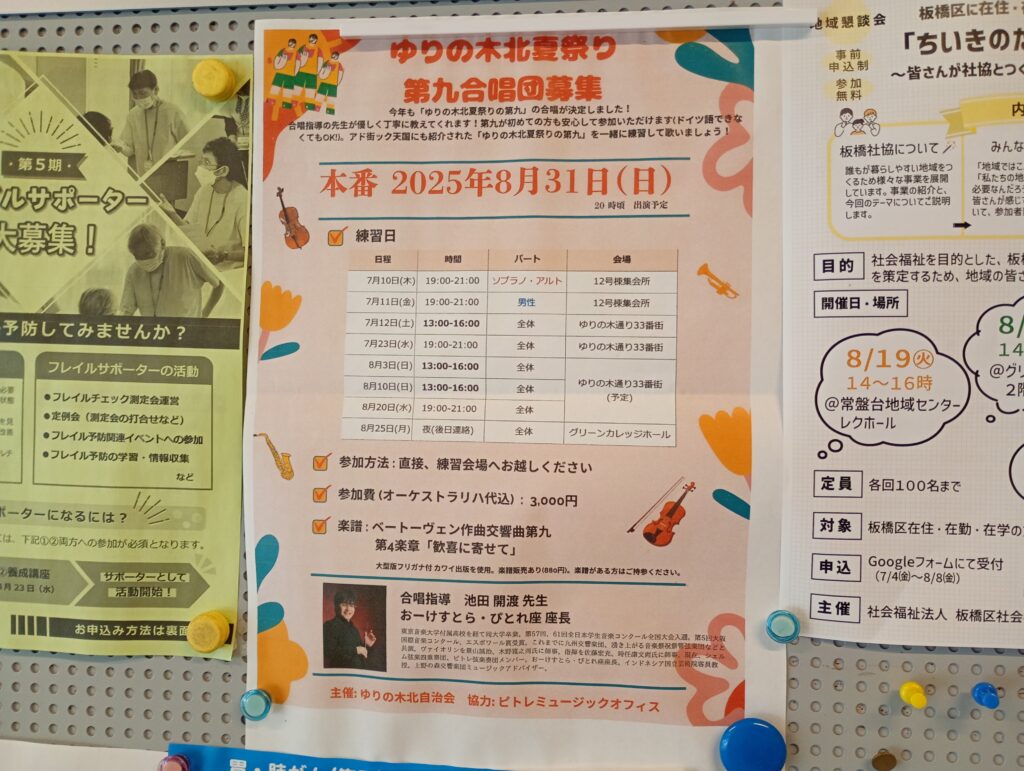 ・第5期・
イルサポーター
大募集！
予防してみませんか？
フレイルサポーターの活動
●フレイルチェック測定会運営
●定例会（測定会の打合せなど）
●フレイル予防関連イベントへの参加
●フレイル予防の学習・情報収集
など
ポーターになるには？
は、下記①②両方への参加が必須となります。
②養成講座
月23日（水）
サポーターとして
活動開始！
お申込み方法は裏面
ゆりの木北夏祭り
第九合唱団募集
今年も「ゆりの木北夏祭りの第九」の合唱が決定しました！
合唱指導の先生が優しく丁寧に教えてくれます！第九が初めての方も安心して参加いただけます(ドイツ語できな
くてもOK!)。アド街ック天国にも紹介された「ゆりの木北夏祭りの第九」を一緒に練習して歌いましょう！
本番 2025年8月31日(日)
20時頃 出演予定
練習日
日程 時間 パート 会場
7月10日(木) 19:00-21:00 ソプラノ・アルト 12号棟集会所
7月11日(金) 19:00-21:00 男性 12号棟集会所
7月12日(土) 13:00-16:00 全体 ゆりの木通り33番街
7月23日(水) 19:00-21:00 全体 ゆりの木通り33番街
8月3日(日) 13:00-16:00 全体
8月10日(日) 13:00-16:00 全体 ゆりの木通り33番街
(予定)
8月20日(水) 19:00-21:00 全体
8月25日(月) 夜(後日連絡) 全体 グリーンカレッジホール
参加方法：直接、練習会場へお越しください
参加費(オーケストラリハ代込)：3,000円
楽譜：ベートーヴェン作曲交響曲第九
第4楽章「歓喜に寄せて」
大型版フリガナ付 カワイ出版を使用。楽譜販売あり(880円)。楽譜がある方はご持参ください。
合唱指導 池田 開渡 先生
おーけすとら・びとれ座 座長
東京音楽大学付属高校を経て同大学卒業。第57回、61回全日本学生音楽コンクール全国大会入選。第5回大阪
国際音楽コンクール、エスポワール賞受賞。
上野の森交響楽団ミュージックアドバイザー。
主催：ゆりの木北自治会 協力：ピトレミュージックオフィス
地域懇談会
事前
申込制
参加
無料
板橋区に在住・
「ちいきのた
～皆さんが社協とつく
内
板橋社協について
誰もが暮らしやすい地域をつ
くるため様々な事業を展開
しています。事業の紹介と、
今回のテーマについてご説明
します。
みんな
「地域ではこ
「私たちの地
必要なんだろ
皆さんが感じ
いて、参加者
目的
社会福祉を目的とした、板橋
を策定するため、地域の皆さ
開催日・場所
8/19㊋
14～16時
@常盤台地域センター
レクホール
8/
14
@グリ
2階
定員
各回100名まで
対象
板橋区在住・在勤・在学の
申込
Googleフォームにて受付
（7/4㊎～8/8㊎）
主催
社会福祉法人 板橋区社会
胃・肺がん